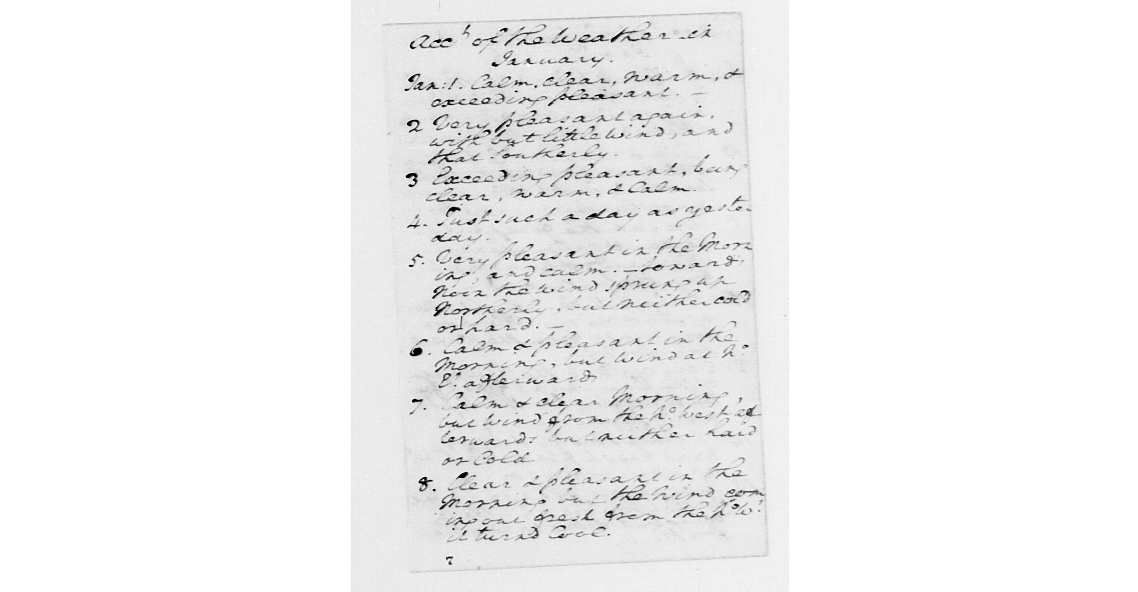 Acct of the Weather in
January.
Jan: 1. Calm, clear, warm, &
exceeding pleasant. —
2 Very pleasant again,
with but little wind, and
that Southerly.
3 Exceeding pleasant, being
clear, warm, & Calm.
4. Just such a day as yester
day.
5. Very pleasant in the Morn
ing, and calm. — toward
Noon the wind sprung up
Northerly, but neither cold
or hard. —
6. Calm & pleasant in the
Morning, but Wind at No.
Et. afterwards
7. Calm & clear Morning,
but Wind from the No. West, af
terwards but neither hard
or Cold
8. Clear & pleasant in the
Morning but the Wind com
ing out fresh from the No. Wt.
it turnd Cool.
7